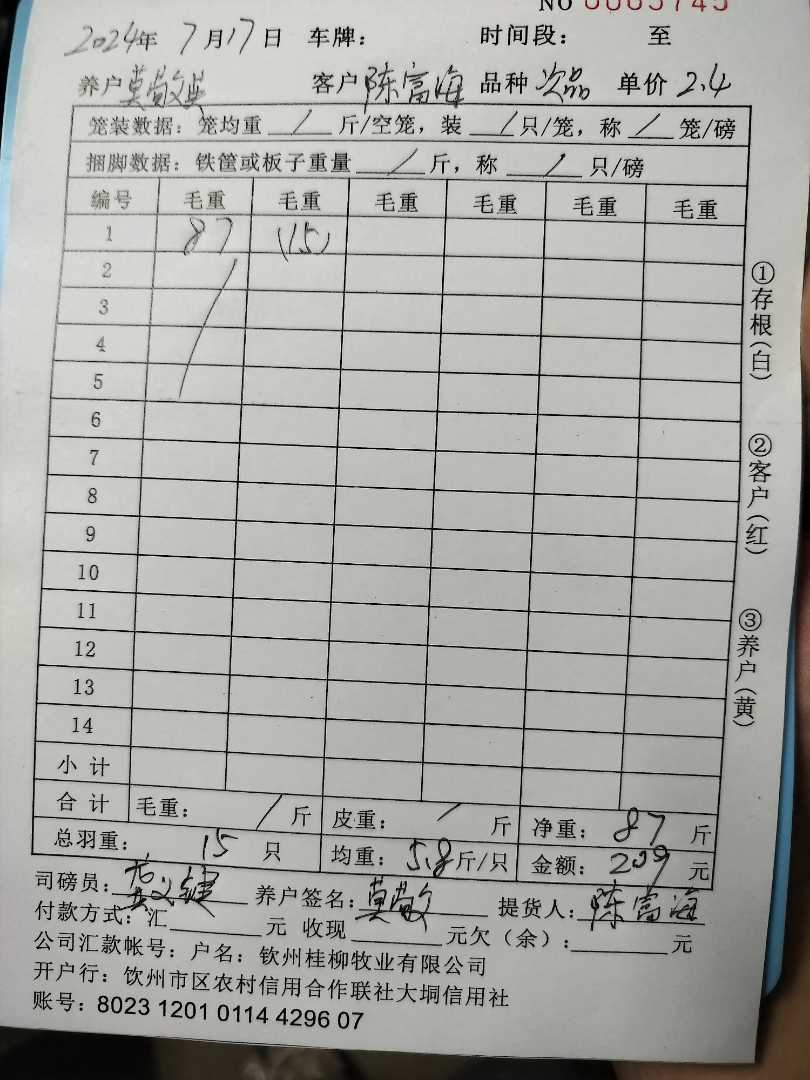 NO 0005745
2024年 7月17日 车牌： 时间段： 至
养户 莫敬 客户 陈富海 品种 次品 单价 2.4
笼装数据：笼均重 / 斤/空笼，装 / 只/笼，称 / 笼/磅
捆脚数据：铁筐或板子重量 / 斤，称 / 只/磅
编号 毛重 毛重 毛重 毛重 毛重 毛重
1 87 (15)
2
3
4
5
6
7
8
9
10
11
12
13
14
小计
合计 毛重： / 斤 皮重： / 斤 净重： 87 斤
总羽重： 15 只 均重： 5.8 斤/只 金额： 209 元
司磅员： 养户签名： 莫敬 提货人： 陈富海
付款方式：汇 元 收现 元欠（余）： 元
公司汇款帐号：户名：钦州桂柳牧业有限公司
开户行：钦州市区农村信用合作联社大垌信用社
账号：8023 1201 0114 4296 07
①存根（白）
②客户（红）
③养户（黄）